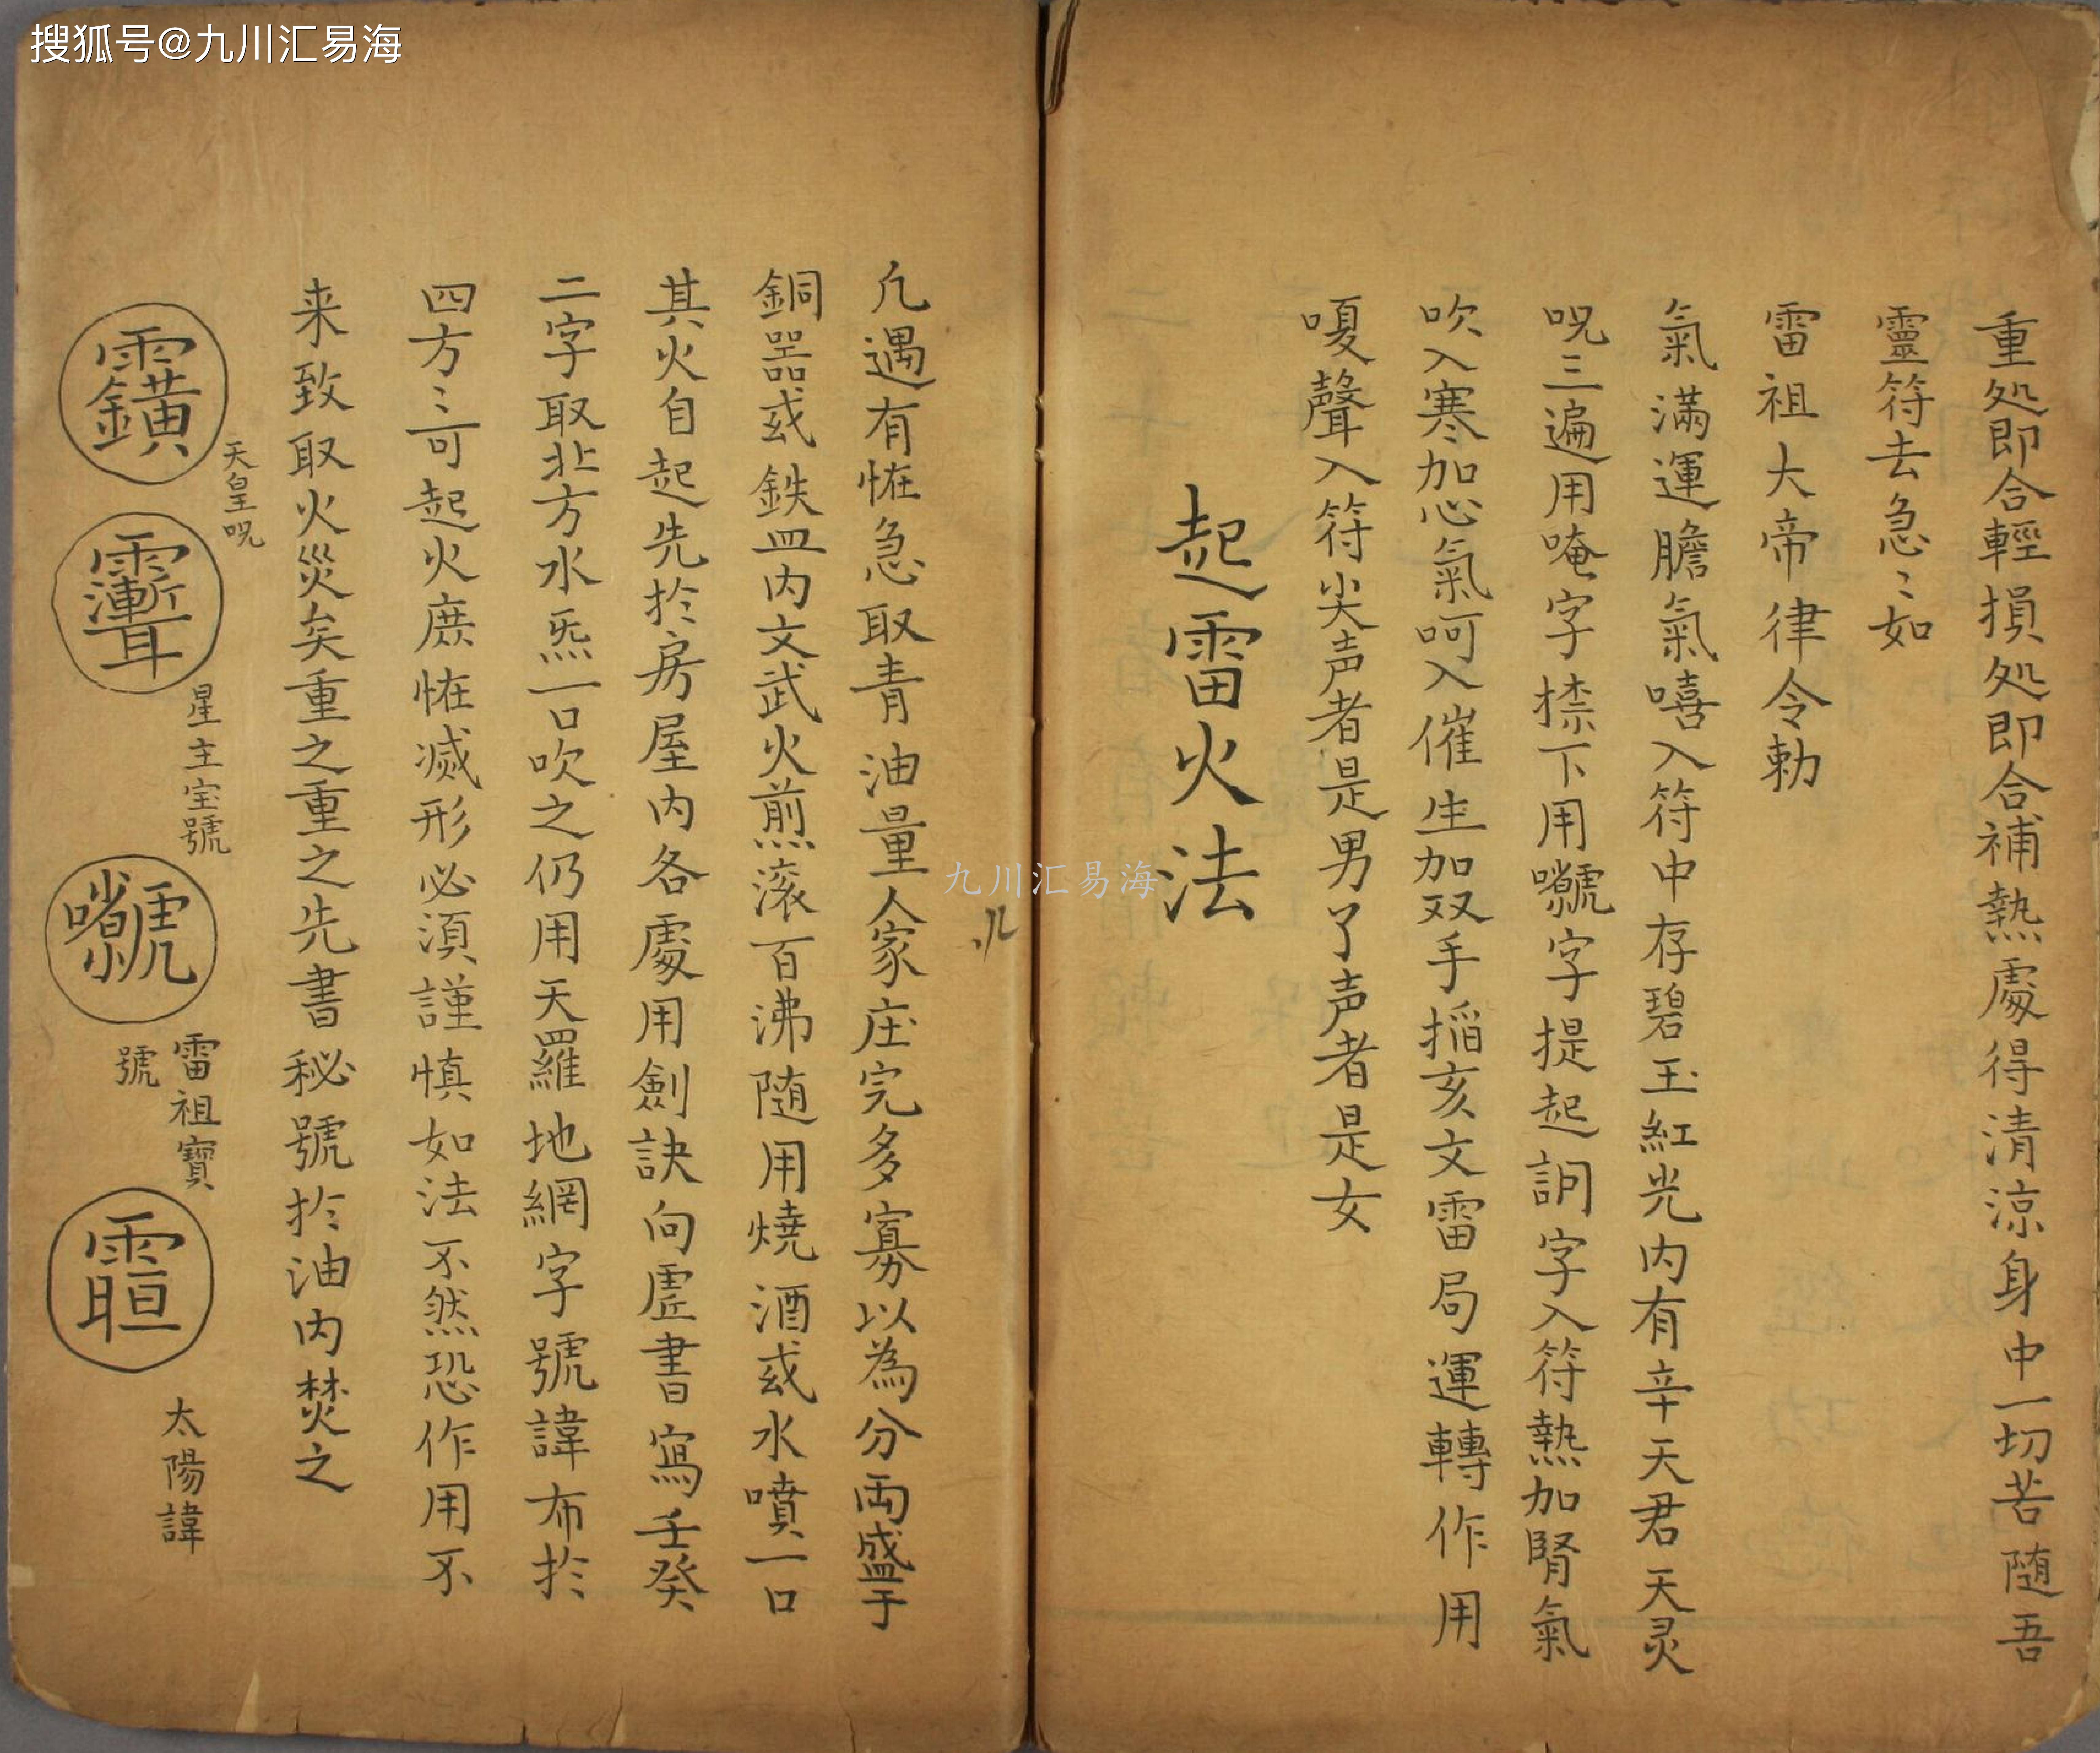 搜狐号@九川汇易海
重処即合輕損処即合補熱處得清涼身中一切苦随吾
靈符去急〻如
雷祖大帝律令勅
氣满運膽氣嘻入符中存碧玉紅光内有辛天君天灵
呪三遍用唵字㨷下用字提起訶字入符熱加腎氣
吹入寒加心氣呵入催生加双手掐亥文雷局運轉作用
嗄聲入符尖声者是男了声者是女
起雷火法
九川汇易海
凢遇有恠急取青油量人家庄完多寡以為分両盛于
銅器或鉄皿内文武火煎滚百沸随用燒酒或水噴一口
其火自起先扵房屋内各處用劍訣向虛書寫壬癸
二字取北方水炁一口吹之仍用天羅地網字號諱布扵
四方〻可起火庶恠滅形必須謹慎如法不然恐作用不
来致取火災矣重之重之先書秘號扵油内焚之
天皇呪
星主宝號
雷祖寶
號
太陽諱